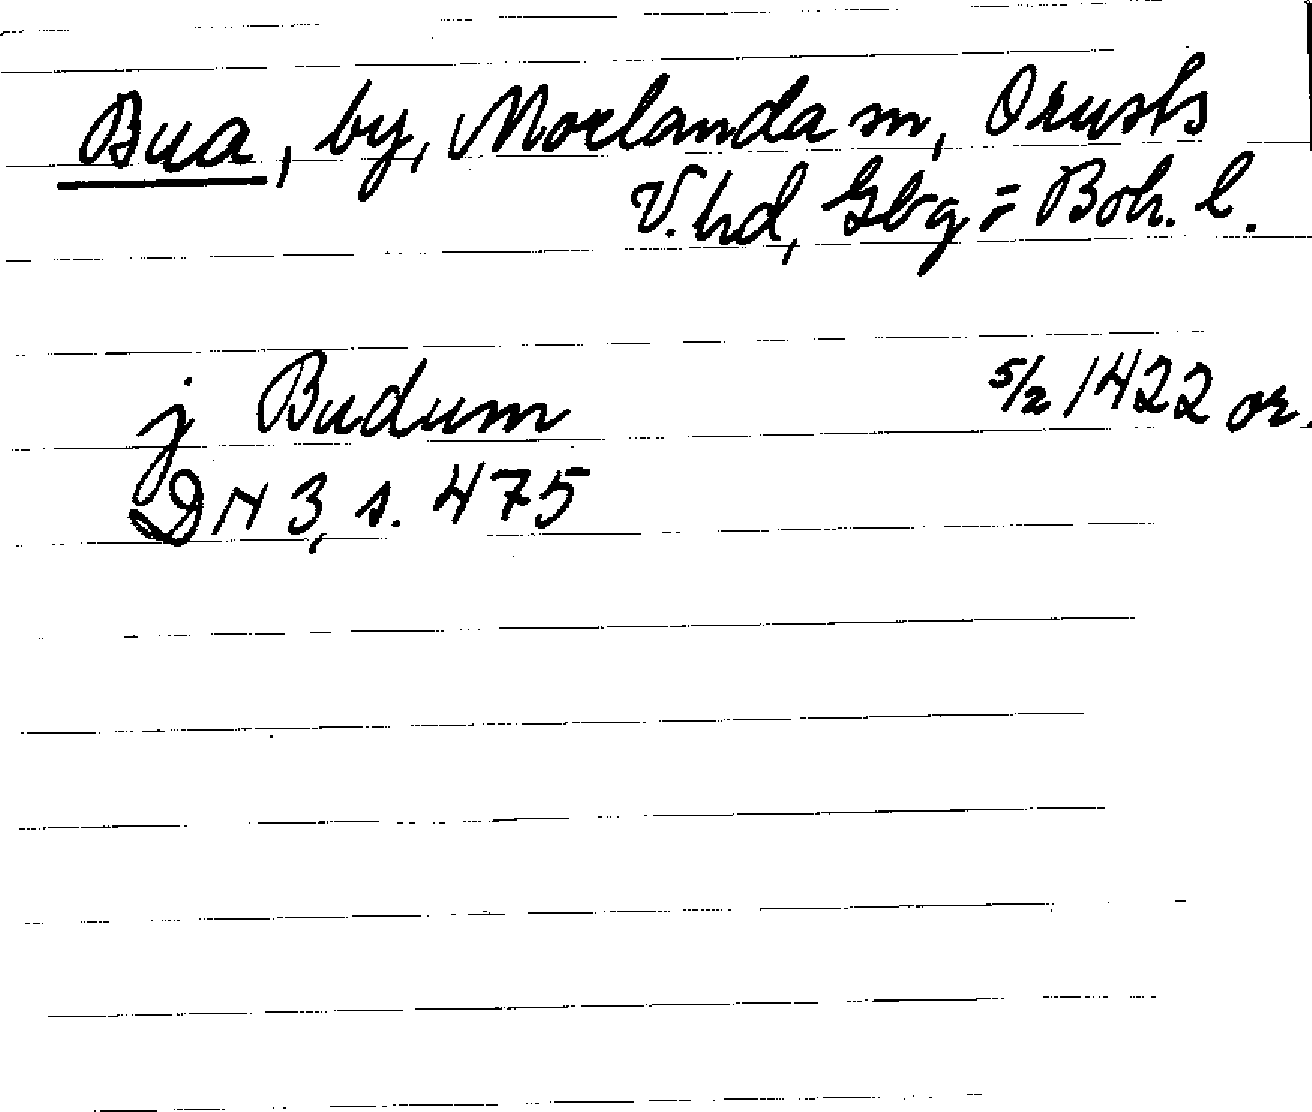 Bua, by, Morlanda sn, Orusts
V. hd, Gbg = Boh. l.
j Budum 5/2 1422 or.
DN 3, s. 475